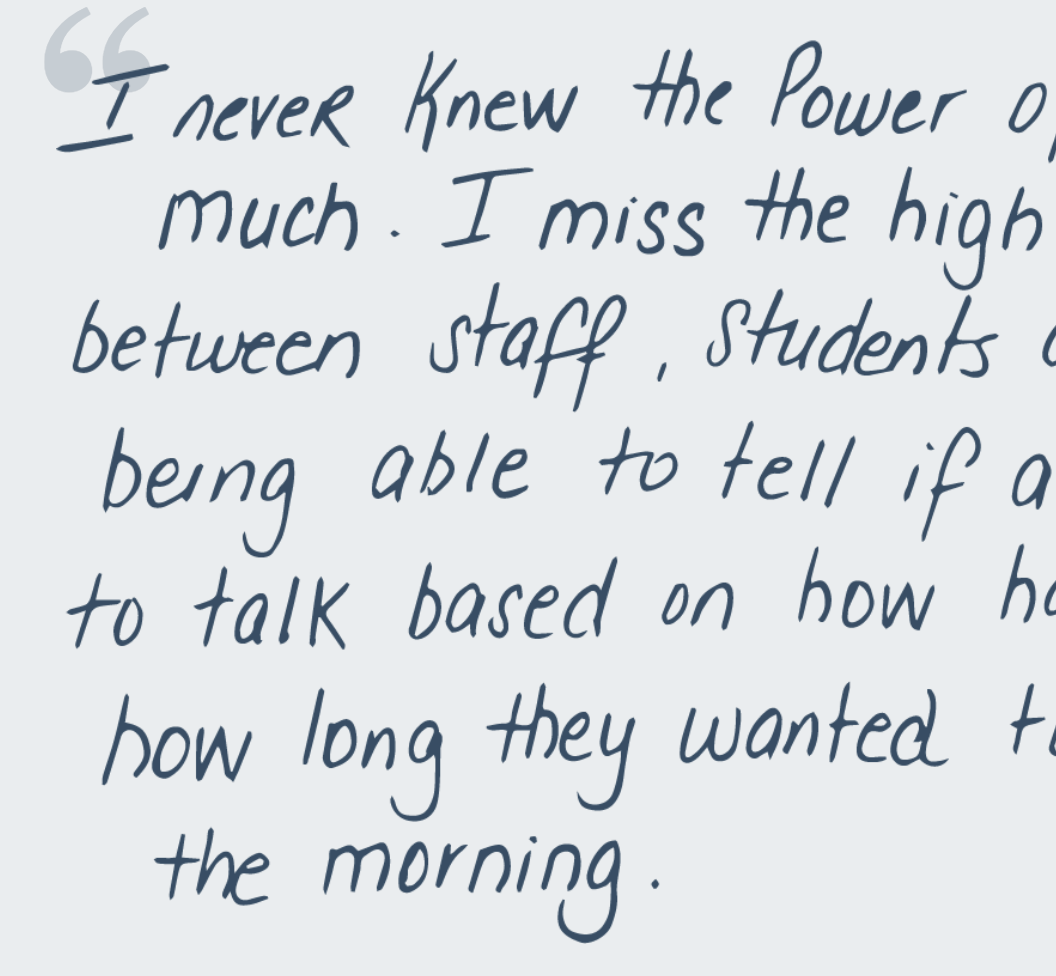 “I never Knew the Power o
much. I miss the high
between staff, students
being able to tell if a
to talk based on how
how long they wanted
the morning.